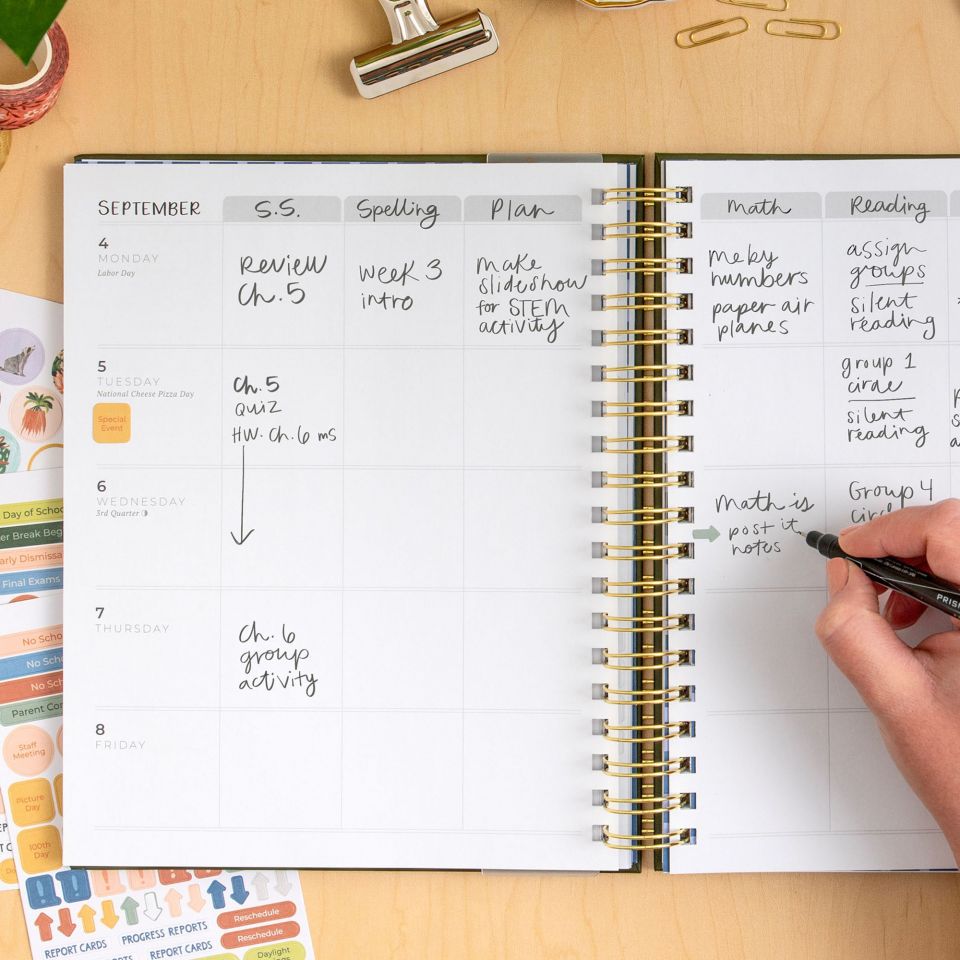 SEPTEMBER
S.S.
Spelling
Plan
Math
Reading
4
MONDAY
Labor Day
Review
Ch. 5
week 3
intro
make
slideshow
for STEM
activity
numbers
paper air
planes
assign
groups
silent
reading
5
TUESDAY
National Cheese Pizza Day
Special
Event
Ch. 5
QUIZ
HW. Ch. 6 ms
group 1
circle
silent
reading
6
WEDNESDAY
3rd Quarter
Math is
post it
notes
Group 4
7
THURSDAY
Ch. 6
group
activity
8
FRIDAY
PRIS
Day of Schoo
er Break Beg
arly Dismissa
Final Exams
No Scho
No Scho
No Sch
Parent Con
Staff
Meeting
Picture
Day
100th
Day
REPORT CARDS
PROGRESS REPORTS
REPORT CARDS
Reschedule
Reschedule
Daylight